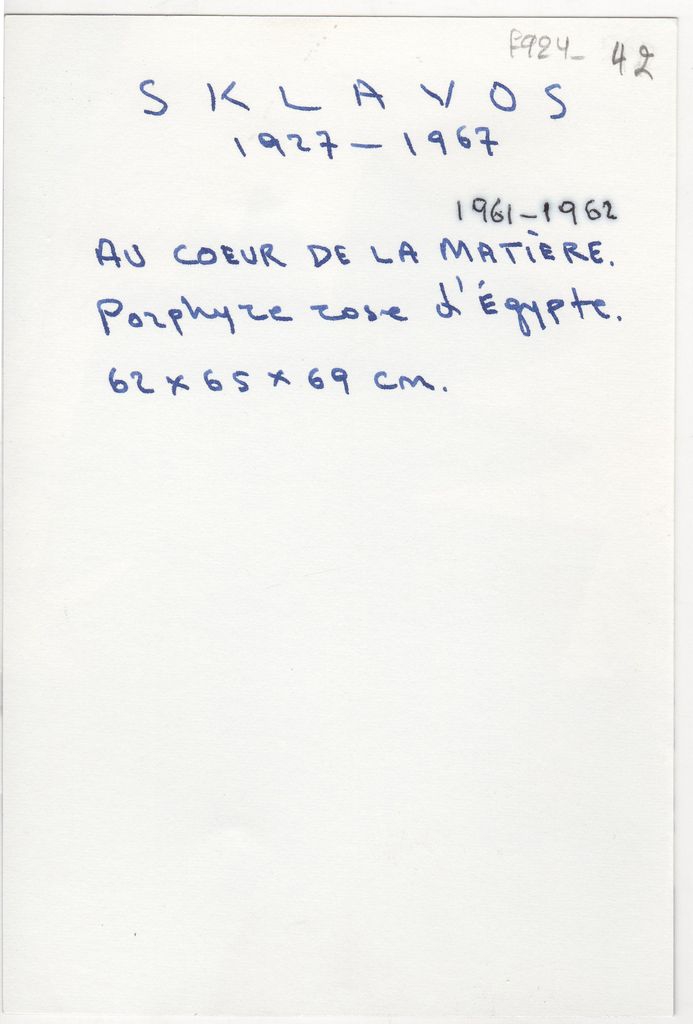 F924- 42
SKLAVOS
1927-1967
1961-1962
AU COEUR DE LA MATIÈRE.
Porphyre rose d'Égypte.
62 x 65 x 69 cm.